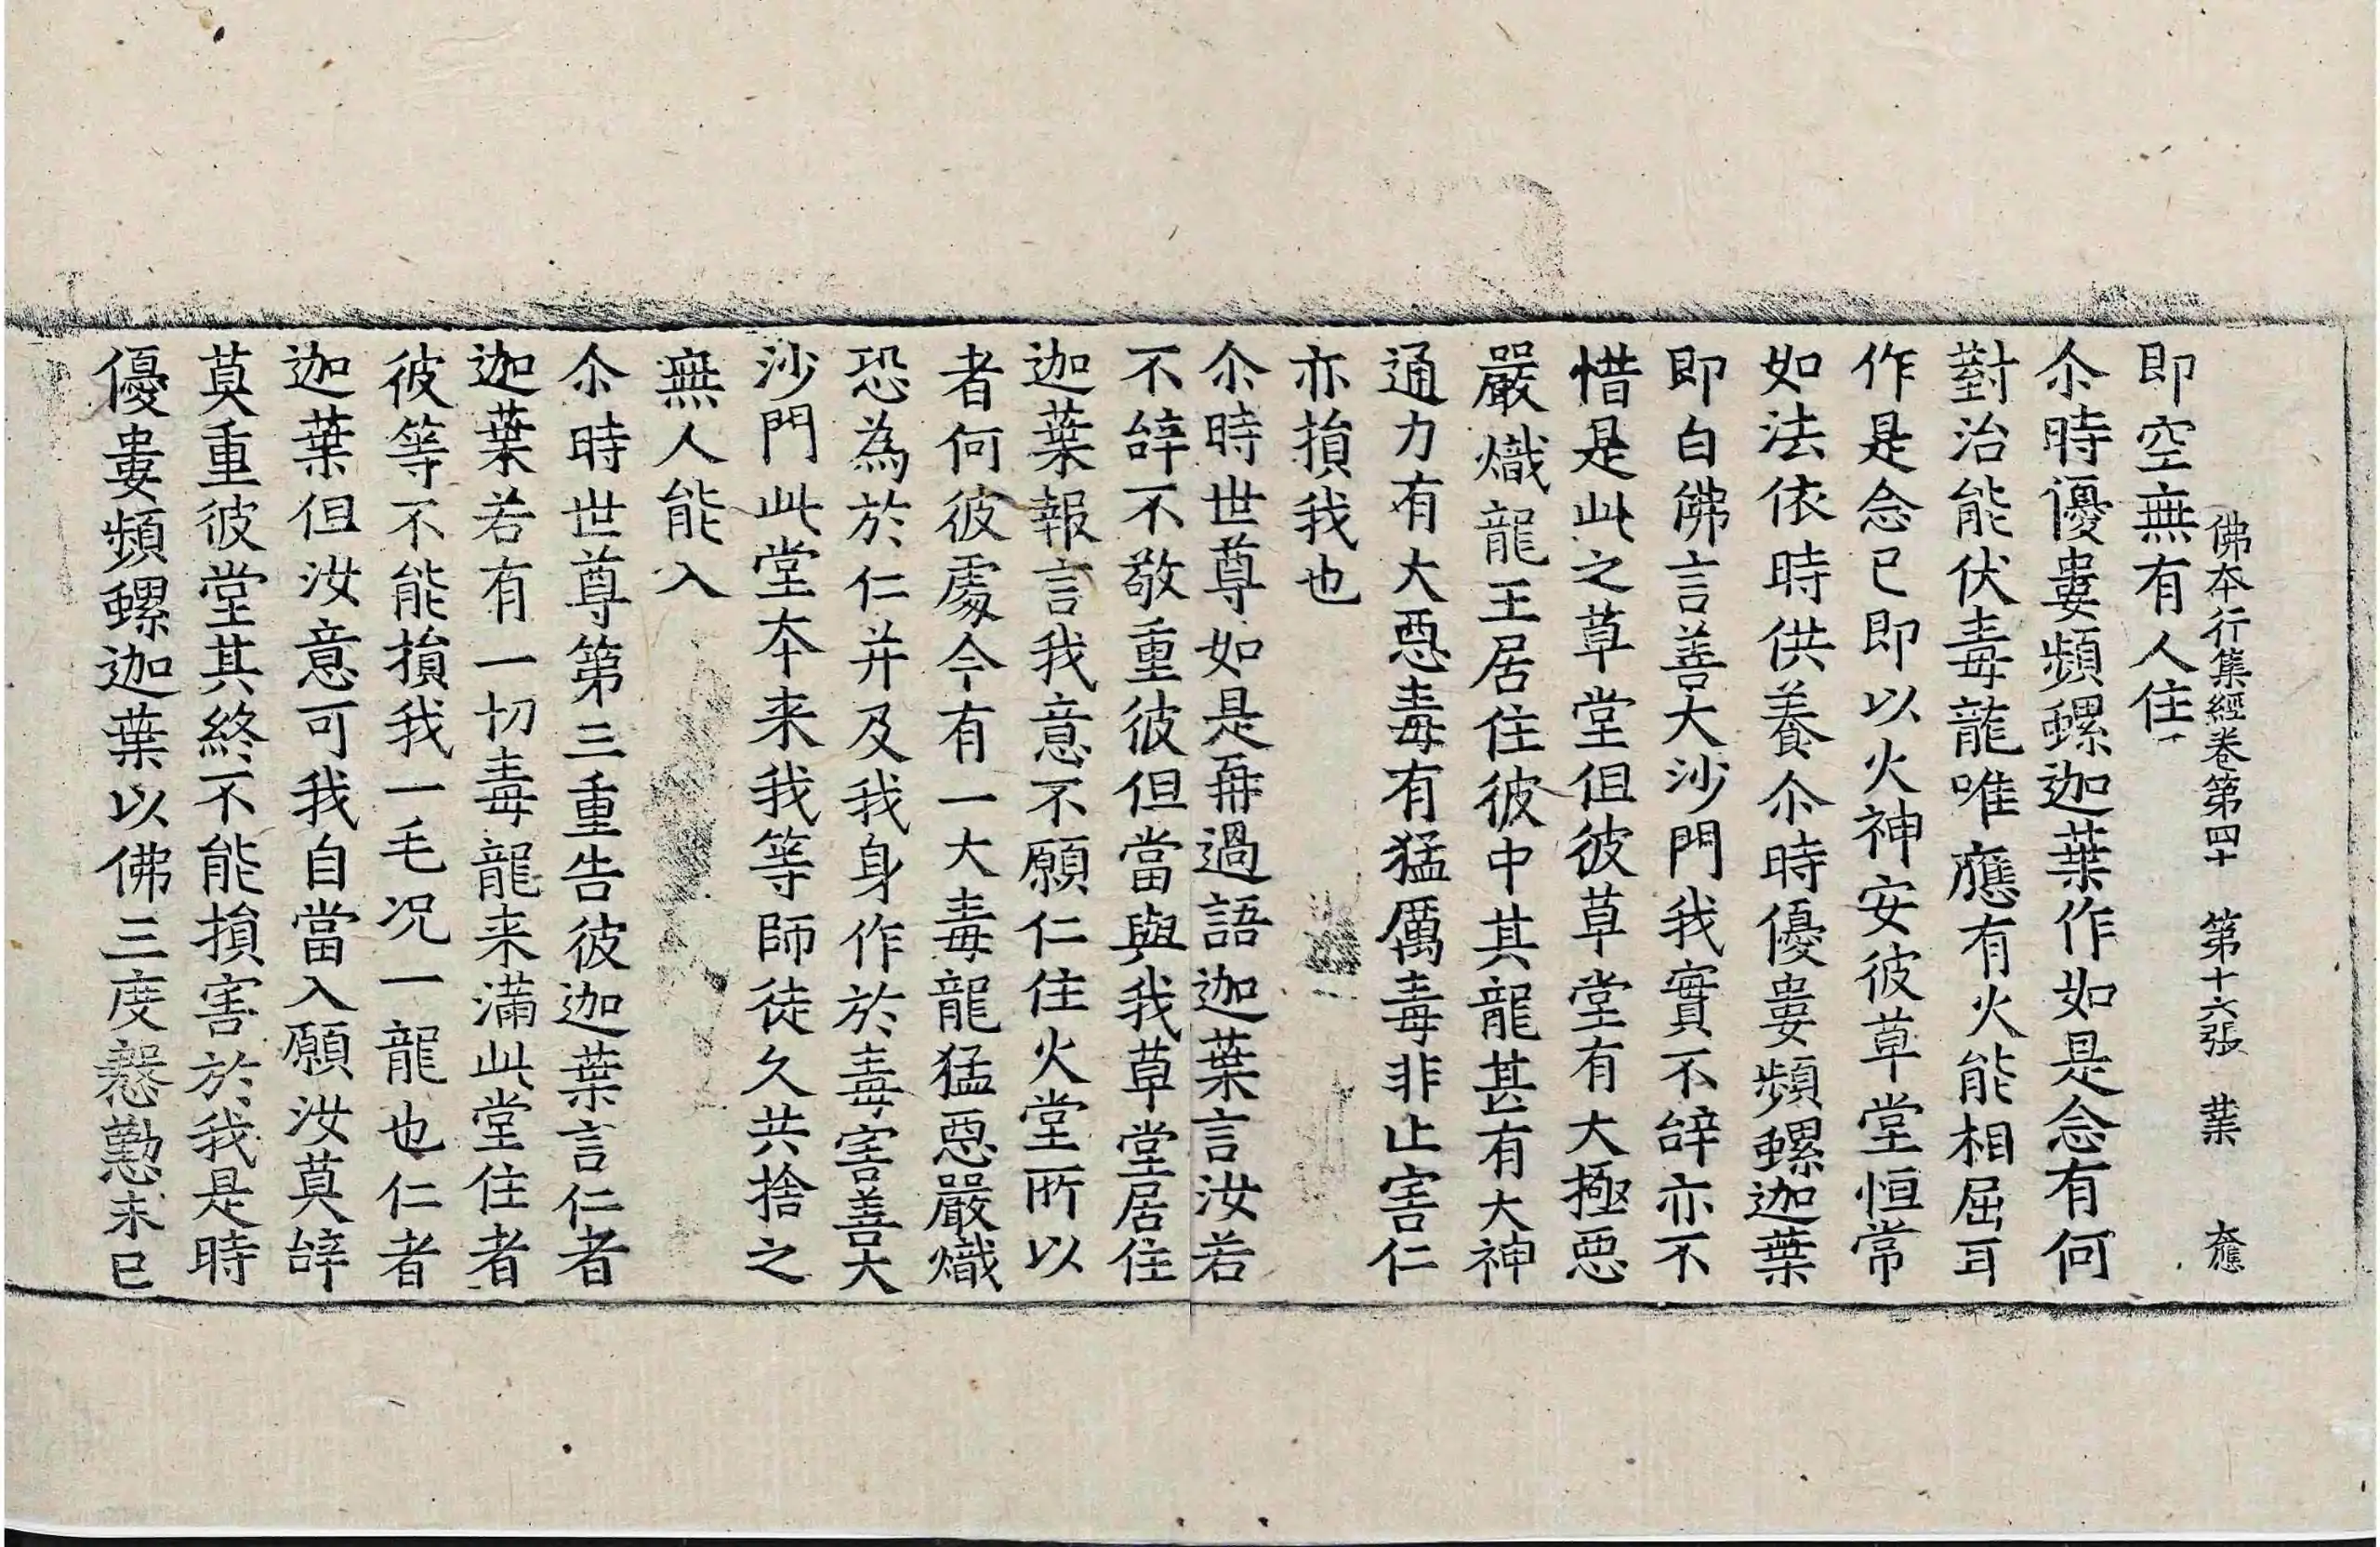 佛本行集經卷第四十　第十六張　葉
即空無有人住
尒時優婁頻螺迦葉作如是念有何
對治能伏毒龍唯應有火能相屈耳
作是念已即以火神安彼草堂恒常
如法依時供養尒時優婁頻螺迦葉
即白佛言善大沙門我實不辝亦不
惜是此之草堂但彼草堂有大極惡
嚴熾龍王居住彼中其龍甚有大神
通力有大惡毒有猛厲毒非止害仁
亦損我也
尒時世尊如是再過語迦葉言汝若
不辝不敬重彼但當與我草堂居住
迦葉報言我意不願仁住火堂所以
者何彼處今有一大毒龍猛惡嚴熾
恐為於仁并及我身作於毒害善大
沙門此堂本来我等師徒久共捨之
無人能入
尒時世尊第三重告彼迦葉言仁者
迦葉若有一切毒龍来滿此堂住者
彼等不能損我一毛况一龍也仁者
迦葉但汝意可我自當入願汝莫辝
莫重彼堂其終不能損害於我是時
優婁頻螺迦葉以佛三度慇懃未已